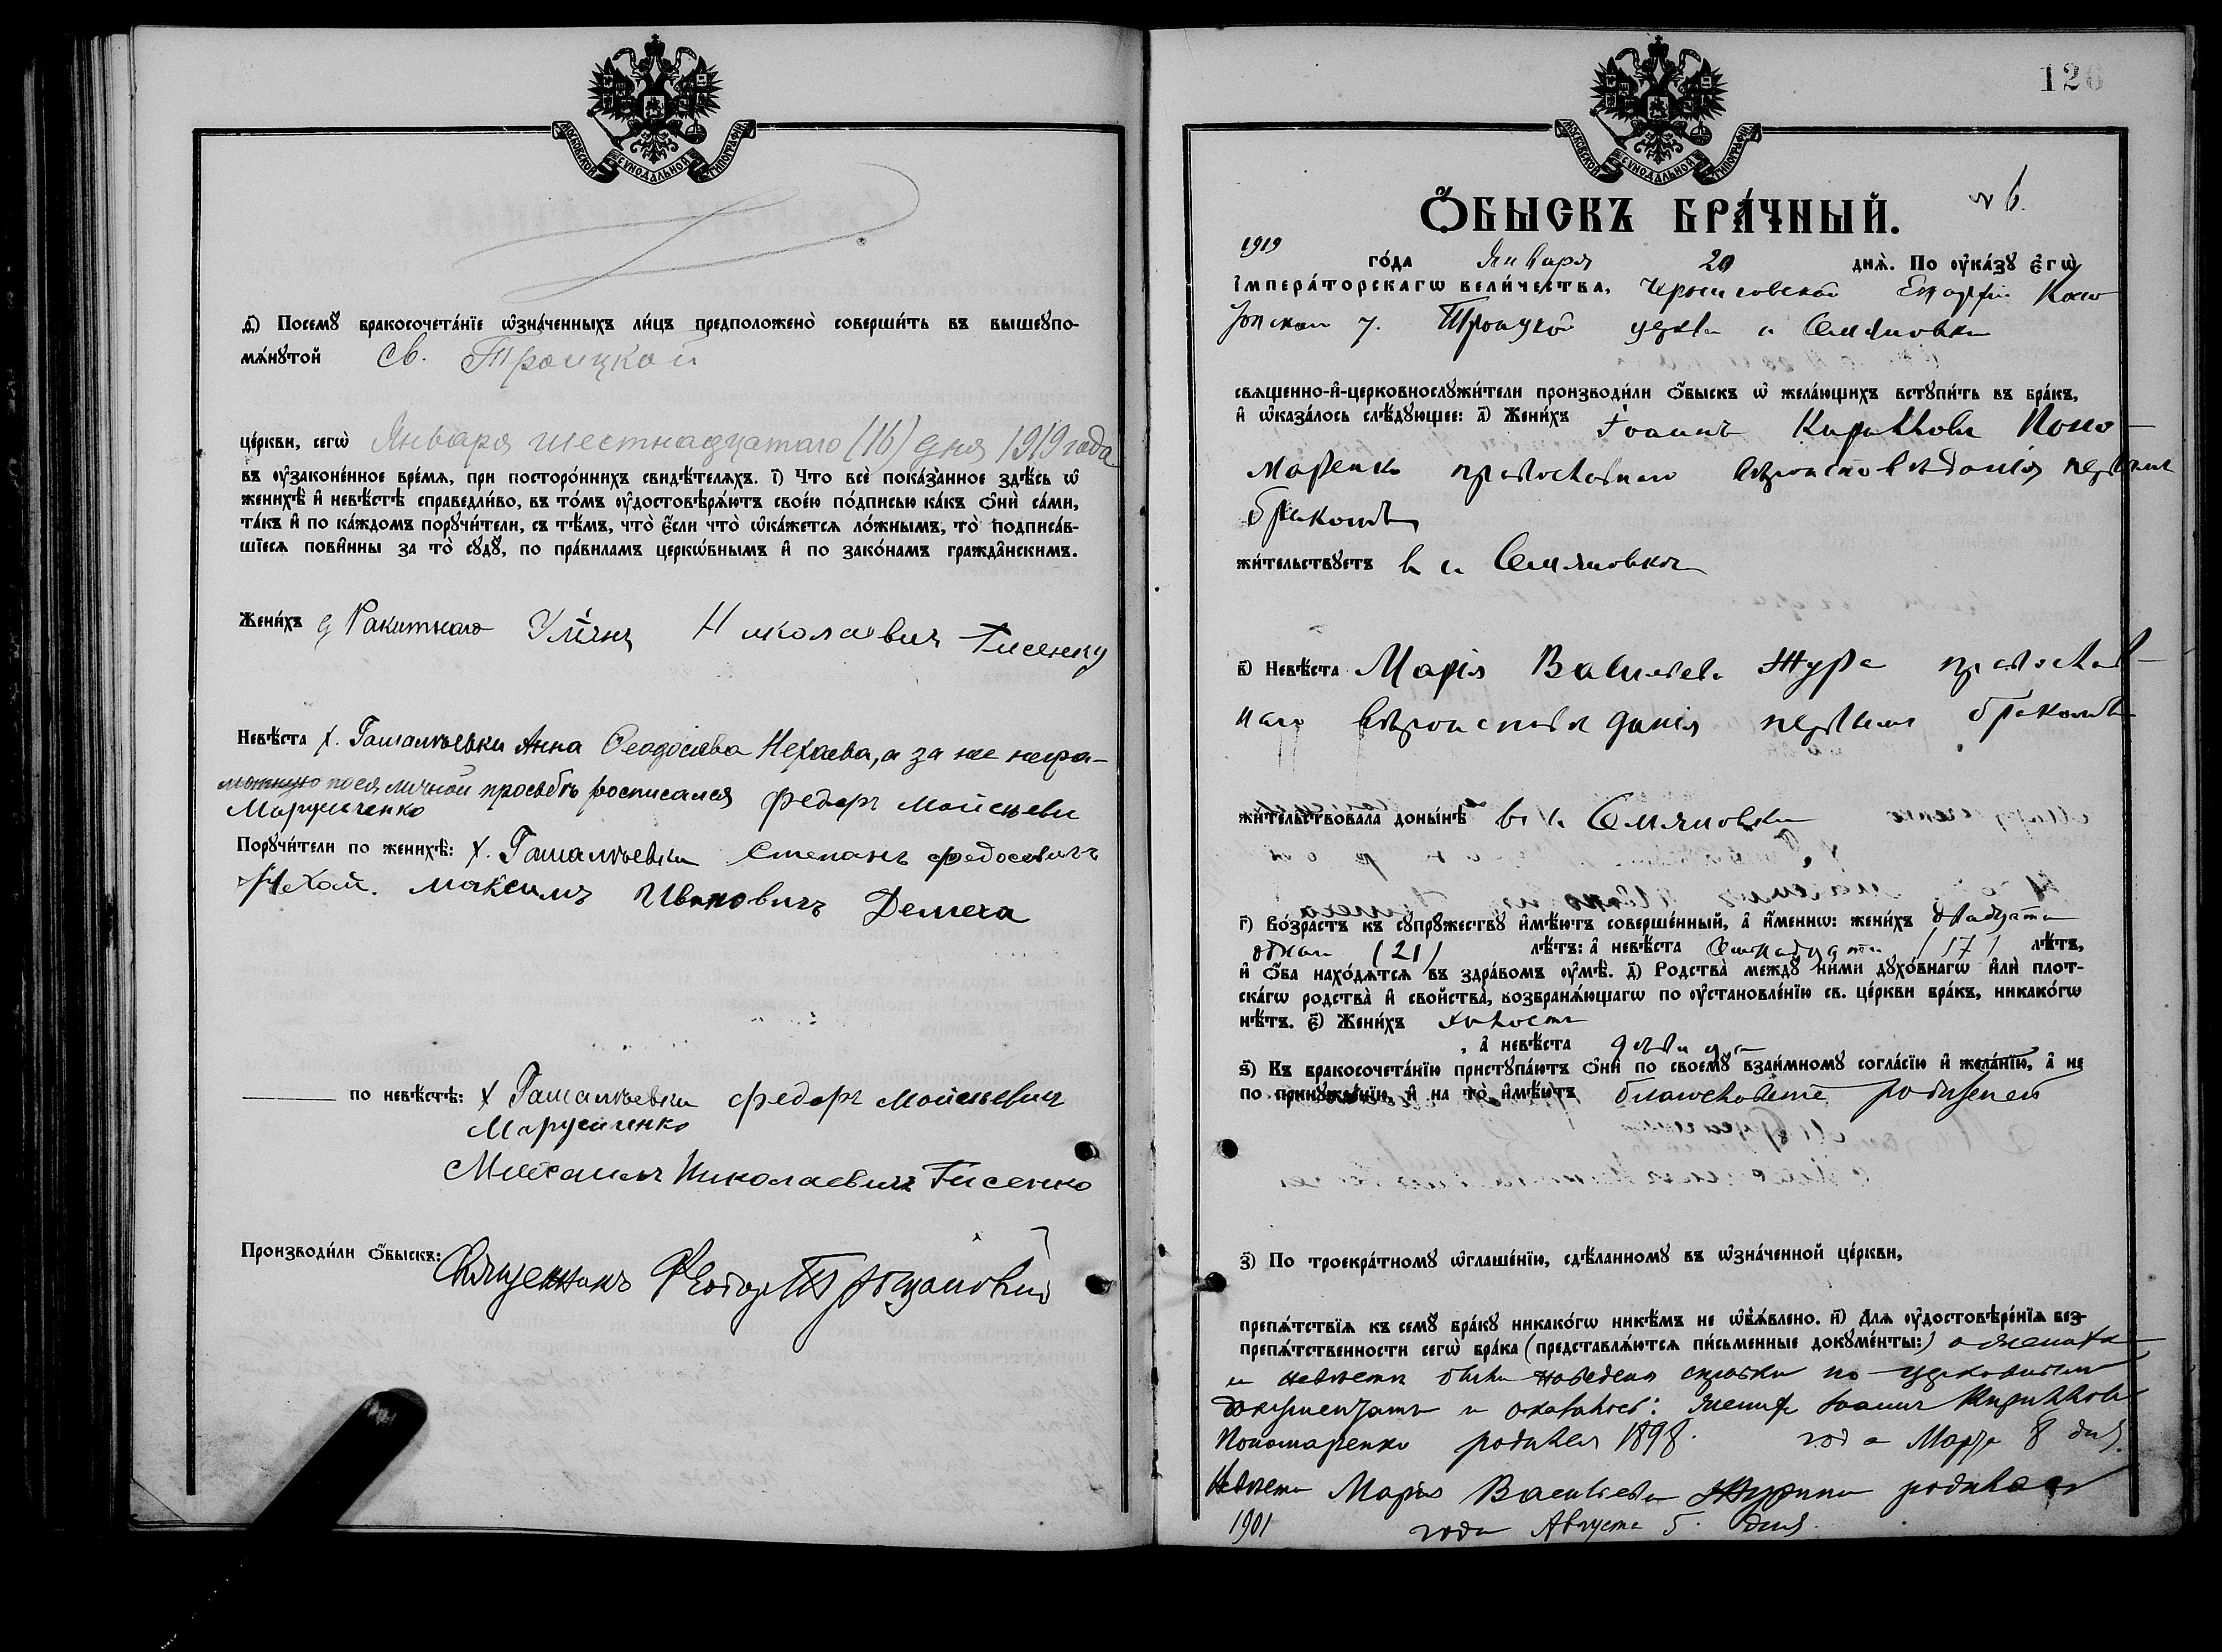 МОСКОВСКОЙ СѴНОДАЛЬНОЙ ТИПОГРАФІИ
ѳ҃) Посемꙋ̀ бракосочета́нїе ѡ҆зна́ченныхъ ли́цъ предположено̀ соверши́ть въ вышеꙋпо-
мѧ́нꙋтой Св. Троицкой
це́ркви, сегѡ̀ Января шестнадцатаго (16) дня 1919 года
въ ᲂу҆зако́ненное вре́мѧ, при посторо́ннихъ свидѣ́телѧхъ. і҃) Что̀ всѐ пока́занное здѣ́сь ѡ҆
женихѣ̀ и҆ невѣ́стѣ справедли́во, въ то́мъ ᲂу҆достовѣрѧ́ютъ свое́ю по́дписью ка́къ ѻ҆нѝ са́ми,
та́къ и҆ по ка́ждомъ порꙋчи́тели, съ тѣ́мъ, что̀ є҆́сли что̀ ѡ҆ка́жетсѧ ло́жнымъ, то̀ подписа́в-
шїесѧ пови́нны за то̀ сꙋдꙋ̀, по пра́виламъ церкѡ́внымъ и҆ по зако́намъ гражда́нскимъ.
Жени́хъ д Ракитного Николаевич Лисенку
Невѣ́ста х. Анна Феодосіева Нехаева, а за нее негра-
мотную по ея личной просьбѣ росписался Федоръ Мойсѣеви
Марущенко
Порꙋчи́тели по женихѣ̀: х. Степанъ Федосовичъ
Нехай. Максимъ Ивановичъ Демеха
по невѣ́стѣ: х Федоръ Мойсѣевич
Марущенко
Михаилъ Николаевичъ Лисенко
Производи́ли ѻ҆́быскъ: Священникъ Феодоръ
120
МОСКОВСКОЙ СѴНОДАЛЬНОЙ ТИПОГРАФІИ
Ѻ҆́БЫСКЪ БРА́ЧНЫЙ. № 6.
1919 го́да Января 20 днѧ̀. По ᲂу҆ка́зꙋ є҆гѡ̀
і҆мпера́торскагѡ вели́чества, Черниговской Епархіи Коно
топскаго у. Троицкой церкви с Семяновки
свѧще́нно-и҆-церковнослꙋжи́тели производи́ли ѻ҆́быскъ ѡ҆ жела́ющихъ встꙋпи́ть въ бра́къ,
и҆ ѡ҆каза́лось слѣ́дꙋющее: а҃) Жени́хъ Іоаннъ Кирилловъ Поно-
маренко православнаго вѣроисповѣданія первымъ
бракомъ
жи́тельствꙋетъ в с. Семяновкѣ
в҃) Невѣ́ста Марія Васильева Жура православ-
наго вѣроисповѣданія первымъ бракомъ
жи́тельствовала доны́нѣ въ с. Семяновкѣ
г҃) Во́зрастъ къ сꙋпрꙋ́жествꙋ и҆мѣ́ютъ соверше́нный, а҆ и҆́меннѡ: жени́хъ двадцати
одного (21) лѣ́тъ: а҆ невѣ́ста Семнадцати (17) лѣ́тъ,
и҆ ѻ҆́ба нахо́дѧтсѧ въ здра́вомъ ᲂу҆мѣ̀. д҃) Родства̀ междꙋ̀ ни́ми дꙋхо́внагѡ и҆лѝ плот-
ска́гѡ родства̀ и҆ свойства̀, возбранѧ́ющагѡ по ᲂу҆становле́нїю св. це́ркви бра́къ, никако́гѡ
нѣ́тъ. є҃) Жени́хъ холостъ
, а҆ невѣ́ста дѣвица
ѕ҃) Къ бракосочета́нїю пристꙋпа́ютъ ѻ҆нѝ по своемꙋ̀ взаи́мномꙋ согла́сїю и҆ жела́нїю, а҆ не
по принꙋжде́нїю, и҆ на то̀ и҆мѣ́ютъ благословеніе родителей
з҃) По троекра́тномꙋ ѡ҆глаше́нїю, сдѣ́ланномꙋ въ ѡ҆зна́ченной це́ркви,
препѧ́тствїѧ къ семꙋ̀ бра́кꙋ никако́гѡ никѣ́мъ не ѡ҆б̾ѧ́влено. и҃) Для ᲂу҆достовѣре́нїѧ без-
препѧ́тственности сегѡ̀ бра́ка (представлѧ́ютсѧ пи́сьменные докꙋме́нты:) о женихѣ
и невѣстѣ были наведены справки по церковнымъ
документамъ и оказалось: женихъ Іоаннъ Кирилловъ
Пономаренко родился 1898 года Марта 8 дня.
Невѣста Марія Васильева Журина родилась
1901 года Августа 5. дня.